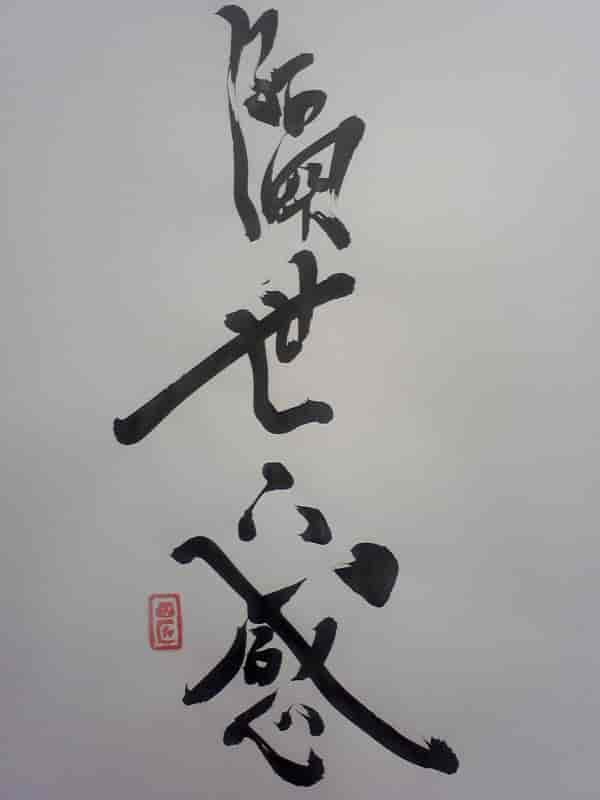 隔世之感